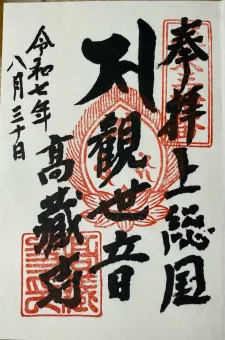 奉拝上総国
観世音
高蔵寺
令和七年
八月三十日